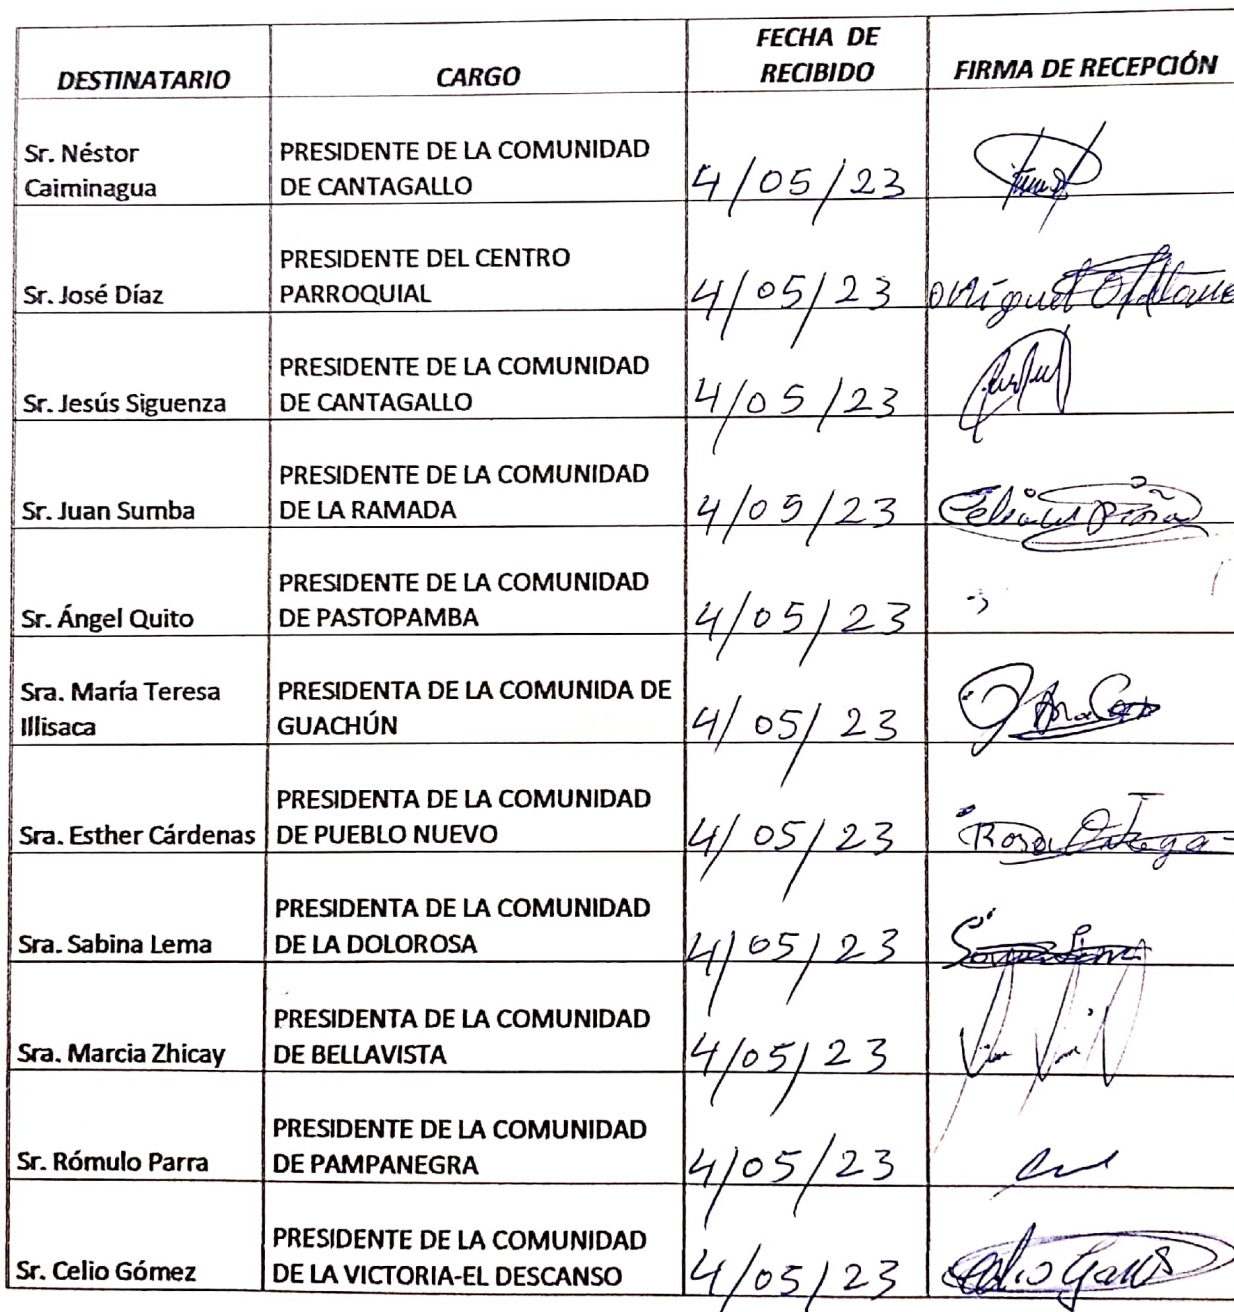 DESTINATARIO CARGO FECHA DE RECIBIDO FIRMA DE RECEPCIÓN
Sr. Néstor Caiminagua PRESIDENTE DE LA COMUNIDAD DE CANTAGALLO 4/05/23
Sr. José Díaz PRESIDENTE DEL CENTRO PARROQUIAL 4/05/23
Sr. Jesús Siguenza PRESIDENTE DE LA COMUNIDAD DE CANTAGALLO 4/05/23
Sr. Juan Sumba PRESIDENTE DE LA COMUNIDAD DE LA RAMADA 4/05/23
Sr. Ángel Quito PRESIDENTE DE LA COMUNIDAD DE PASTOPAMBA 4/05/23
Sra. María Teresa Illisaca PRESIDENTA DE LA COMUNIDA DE GUACHÚN 4/05/23
Sra. Esther Cárdenas PRESIDENTA DE LA COMUNIDAD DE PUEBLO NUEVO 4/05/23 Rosa Ortega
Sra. Sabina Lema PRESIDENTA DE LA COMUNIDAD DE LA DOLOROSA 4/05/23
Sra. Marcia Zhicay PRESIDENTA DE LA COMUNIDAD DE BELLAVISTA 4/05/23
Sr. Rómulo Parra PRESIDENTE DE LA COMUNIDAD DE PAMPANEGRA 4/05/23
Sr. Celio Gómez PRESIDENTE DE LA COMUNIDAD DE LA VICTORIA-EL DESCANSO 4/05/23